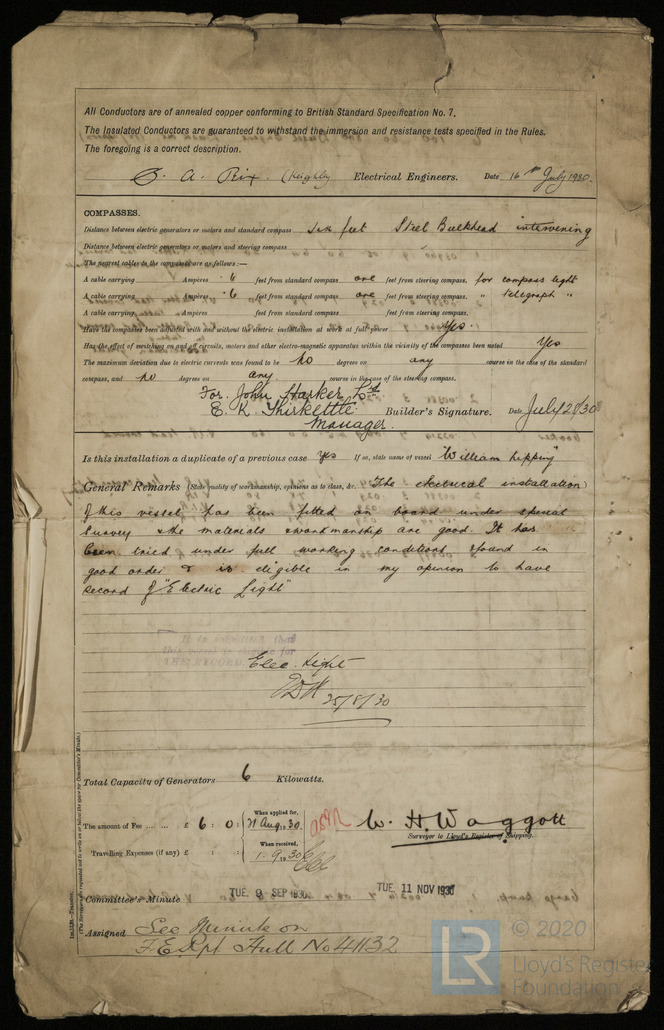 All Conductors are of annealed copper conforming to British Standard Specification No. 7.
The Insulated Conductors are guaranteed to withstand the immersion and resistance tests specified in the Rules.
The foregoing is a correct description.
A. Rix (Keighley Electrical Engineers. Date 16th July 1930.
COMPASSES.
Distance between electric generators or motors and standard compass six feet Steel Bulkhead intervening
Distance between electric generators or motors and steering compass
The nearest cables to the compasses are as follows:—
A cable carrying Ampères ·6 feet from standard compass are feet from steering compass. for compass light
A cable carrying Ampères ·6 feet from standard compass are feet from steering compass. " telegraph "
A cable carrying Ampères feet from standard compass feet from steering compass.
Have the compasses been adjusted with and without the electric installation at work at full power Yes
Has the effect of switching on and off circuits, motors and other electro-magnetic apparatus within the vicinity of the compasses been noted Yes
The maximum deviation due to electric currents was found to be No degrees on any course in the case of the standard
compass, and No degrees on any course in the case of the steering compass.
For. John Harker Ltd
E. K. Thirkettle Builder's Signature. Date July 28/30
Manager.
Is this installation a duplicate of a previous case Yes If so, state name of vessel "William Kipping"
General Remarks (State quality of workmanship, opinions as to class, &c. The electrical installation
of this vessel has been fitted on board under special
survey & the materials & workmanship are good. It has
been tried under full working conditions & found in
good order & is eligible in my opinion to have
record of "Electric Light"
It is submitted that
this vessel is eligible for
THE RECORD.
Elec. Light
25/8/30
Total Capacity of Generators 6 Kilowatts.
The amount of Fee ... ... £ 6 : 0 : When applied for, 21 Aug. 1930.
W. H. Waggott
Surveyor to Lloyd's Register of Shipping.
Travelling Expenses (if any) £ : : When received, 1. 9. 1930
Committee's Minute TUE. 9 SEP 1930 TUE. 11 NOV 1930
Assigned See Minute on
F.E. Rpt Hull No 41132
(The Surveyors are requested not to write on or below the space for Committee's Minute.)
© 2020
LR
Lloyd's Register
Foundation